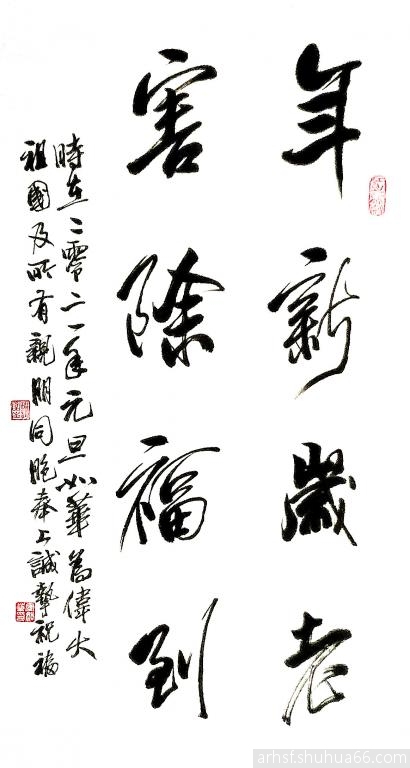 年新歲老
害除福到
時在二零二一年元旦如華為偉大
祖國及所有親朋同胞奉上誠摯祝福
arhsf.shuhua66.com